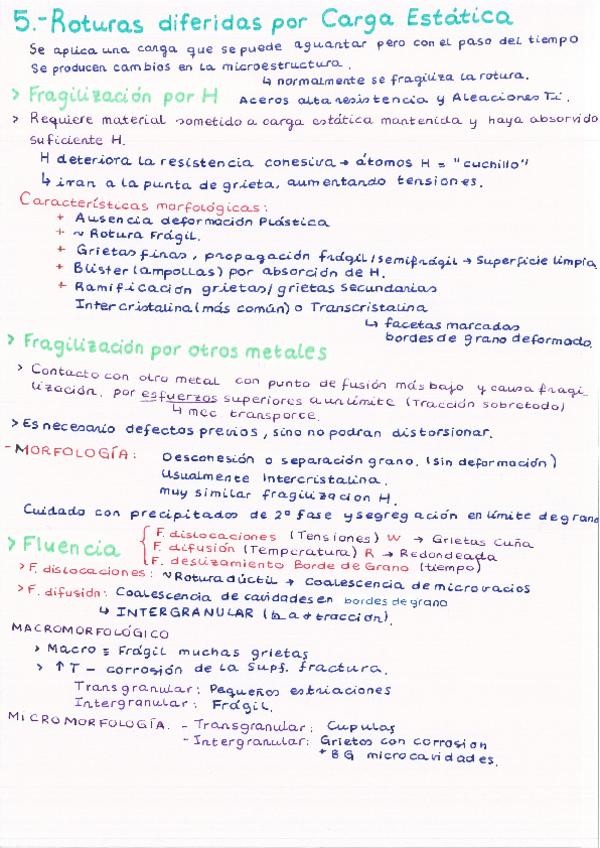 5.- Roturas diferidas por Carga Estática
Se aplica una carga que se puede aguantar pero con el paso del tiempo
se producen cambios en la microestructura.
↳ normalmente se fragiliza la rotura.
> Fragilización por H Aceros alta resistencia y Aleaciones Ti.
> Requiere material sometido a carga estática mantenida y haya absorvido
suficiente H.
H deteriora la resistencia conesiva → átomos H = "cuchillo"
↳ iran a la punta de grieta, aumentando tensiones.
Características morfológicas:
+ Ausencia deformación Plástica
+ ~ Rotura Frágil.
+ Grietas finas, propagación frágil/semifrágil → Superficie limpia
+ Blister (ampollas) por absorción de H.
+ Ramificación grietas/grietas secundarias
Intercristalina (más común) o Transcristalina
↳ facetas marcadas
bordes de grano deformado.
> Fragilización por otros metales
> Contacto con otro metal con punto de fusión más bajo y causa fragi_
lización. por esfuerzos superiores a un límite (Tracción sobretodo)
↳ mec transporce.
> Es necesario defectos previos, sino no podran distorsionar.
- MORFOLOGÍA: Desconesión o separación grano. (sin deformación)
Usualmente Intercristalina.
muy similar fragilizacion H.
Cuidado con precipitados de 2º fase y segregación en límite de grano
> Fluencia { F. dislocaciones (Tensiones) W → Grietas Cuña
F. difusión (Temperatura) R → Redondeada
F. deslizamiento Borde de Grano (tiempo)
> F. dislocaciones: ~ Rotura dúctil → Coalescencia de microvacios
> F. difusión: Coalescencia de cavidades en bordes de grano
↳ INTERGRANULAR (⊥ a σ traccion).
MACROMORFOLÓGICO
> Macro ≡ Frágil muchas grietas
> ↑T - corrosión de la Supf. fractura.
Transgranular: Pequeños estriaciones
Intergranular: Frágil.
MICROMORFOLOGÍA. - Transgranular: Cupulas
- Intergranular: Grietas con corrosion
+ BG microcavidades.